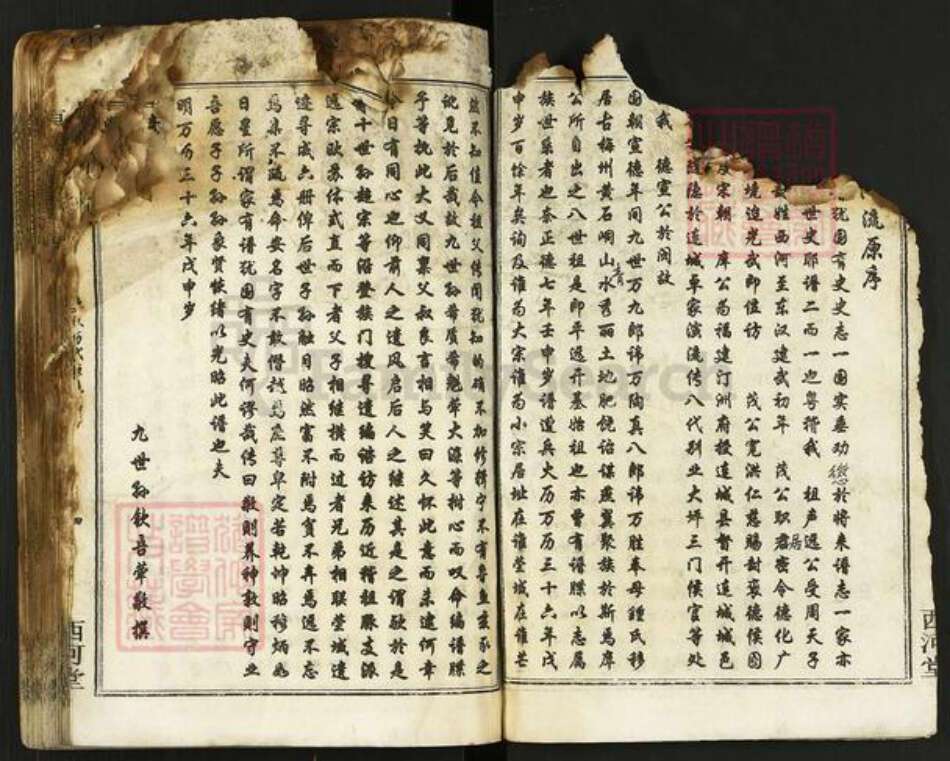 流原序
犹国有史史志一国实垂劝懲於将来谱志一家亦
世史耶谱二而一也粤稽我 祖声遇公受周天子
姓西河至东汉建武初年 茂公职居密令德化广
境迨光武即位访 茂公宽洪仁慈赐封褒德侯国
及宋朝 库公为福建汀洲府授连城县督开连城城邑
德於连城卓家演流传八代别业大坪三门侯官等处
我 德宣公於闽故
国朝宣德年间九世万九郎讳万陶真八郎讳万胜奉母锺氏移
居古梅州黄石峒山青水秀丽土地肥饶诒谋燕翼聚族於斯焉库
公所自出之八世祖是即平远开基始祖也亦曾有谱牒以志属
族世系者也奈正德七年壬申岁谱遭兵火历万历三十六年戊
申岁百馀年矣询及谁为大宗谁为小宗居址在谁莹域在谁芒
然不知谁令祖父传闻犹知的确不加修辑宁不有鲁鱼亥豕之
讹见於后哉故九世孙带质带魁带大海等树心而叹命编谱牒
予等抚此大义同禀父叔良言相与笑曰久怀此意而未逮何幸
今日有同心也仰前人之遗风启后人之继述其是之谓欤於是
十世孙超宗等沿登族门搜寻遗编谘访来历近稽祖脉支派
远宗欧苏体式直而下者父子相继横而过者兄弟相联莹城遗
迹寻成六册俾后世子孙触目昭然富不附焉贫不弃焉远不忘
焉亲不疏焉命安名字不敢僭越焉庶尊卑定若乾坤昭穆炳如
日星所谓家有谱犹国有史夫何谬哉传曰敬则养神敦则守业
吾愿子子孙孙象贤恢绪以光昭此谱也夫
明万历三十六年戊申岁
九世孙钦吾带敬撰
西河堂
西河堂
FamilySearch